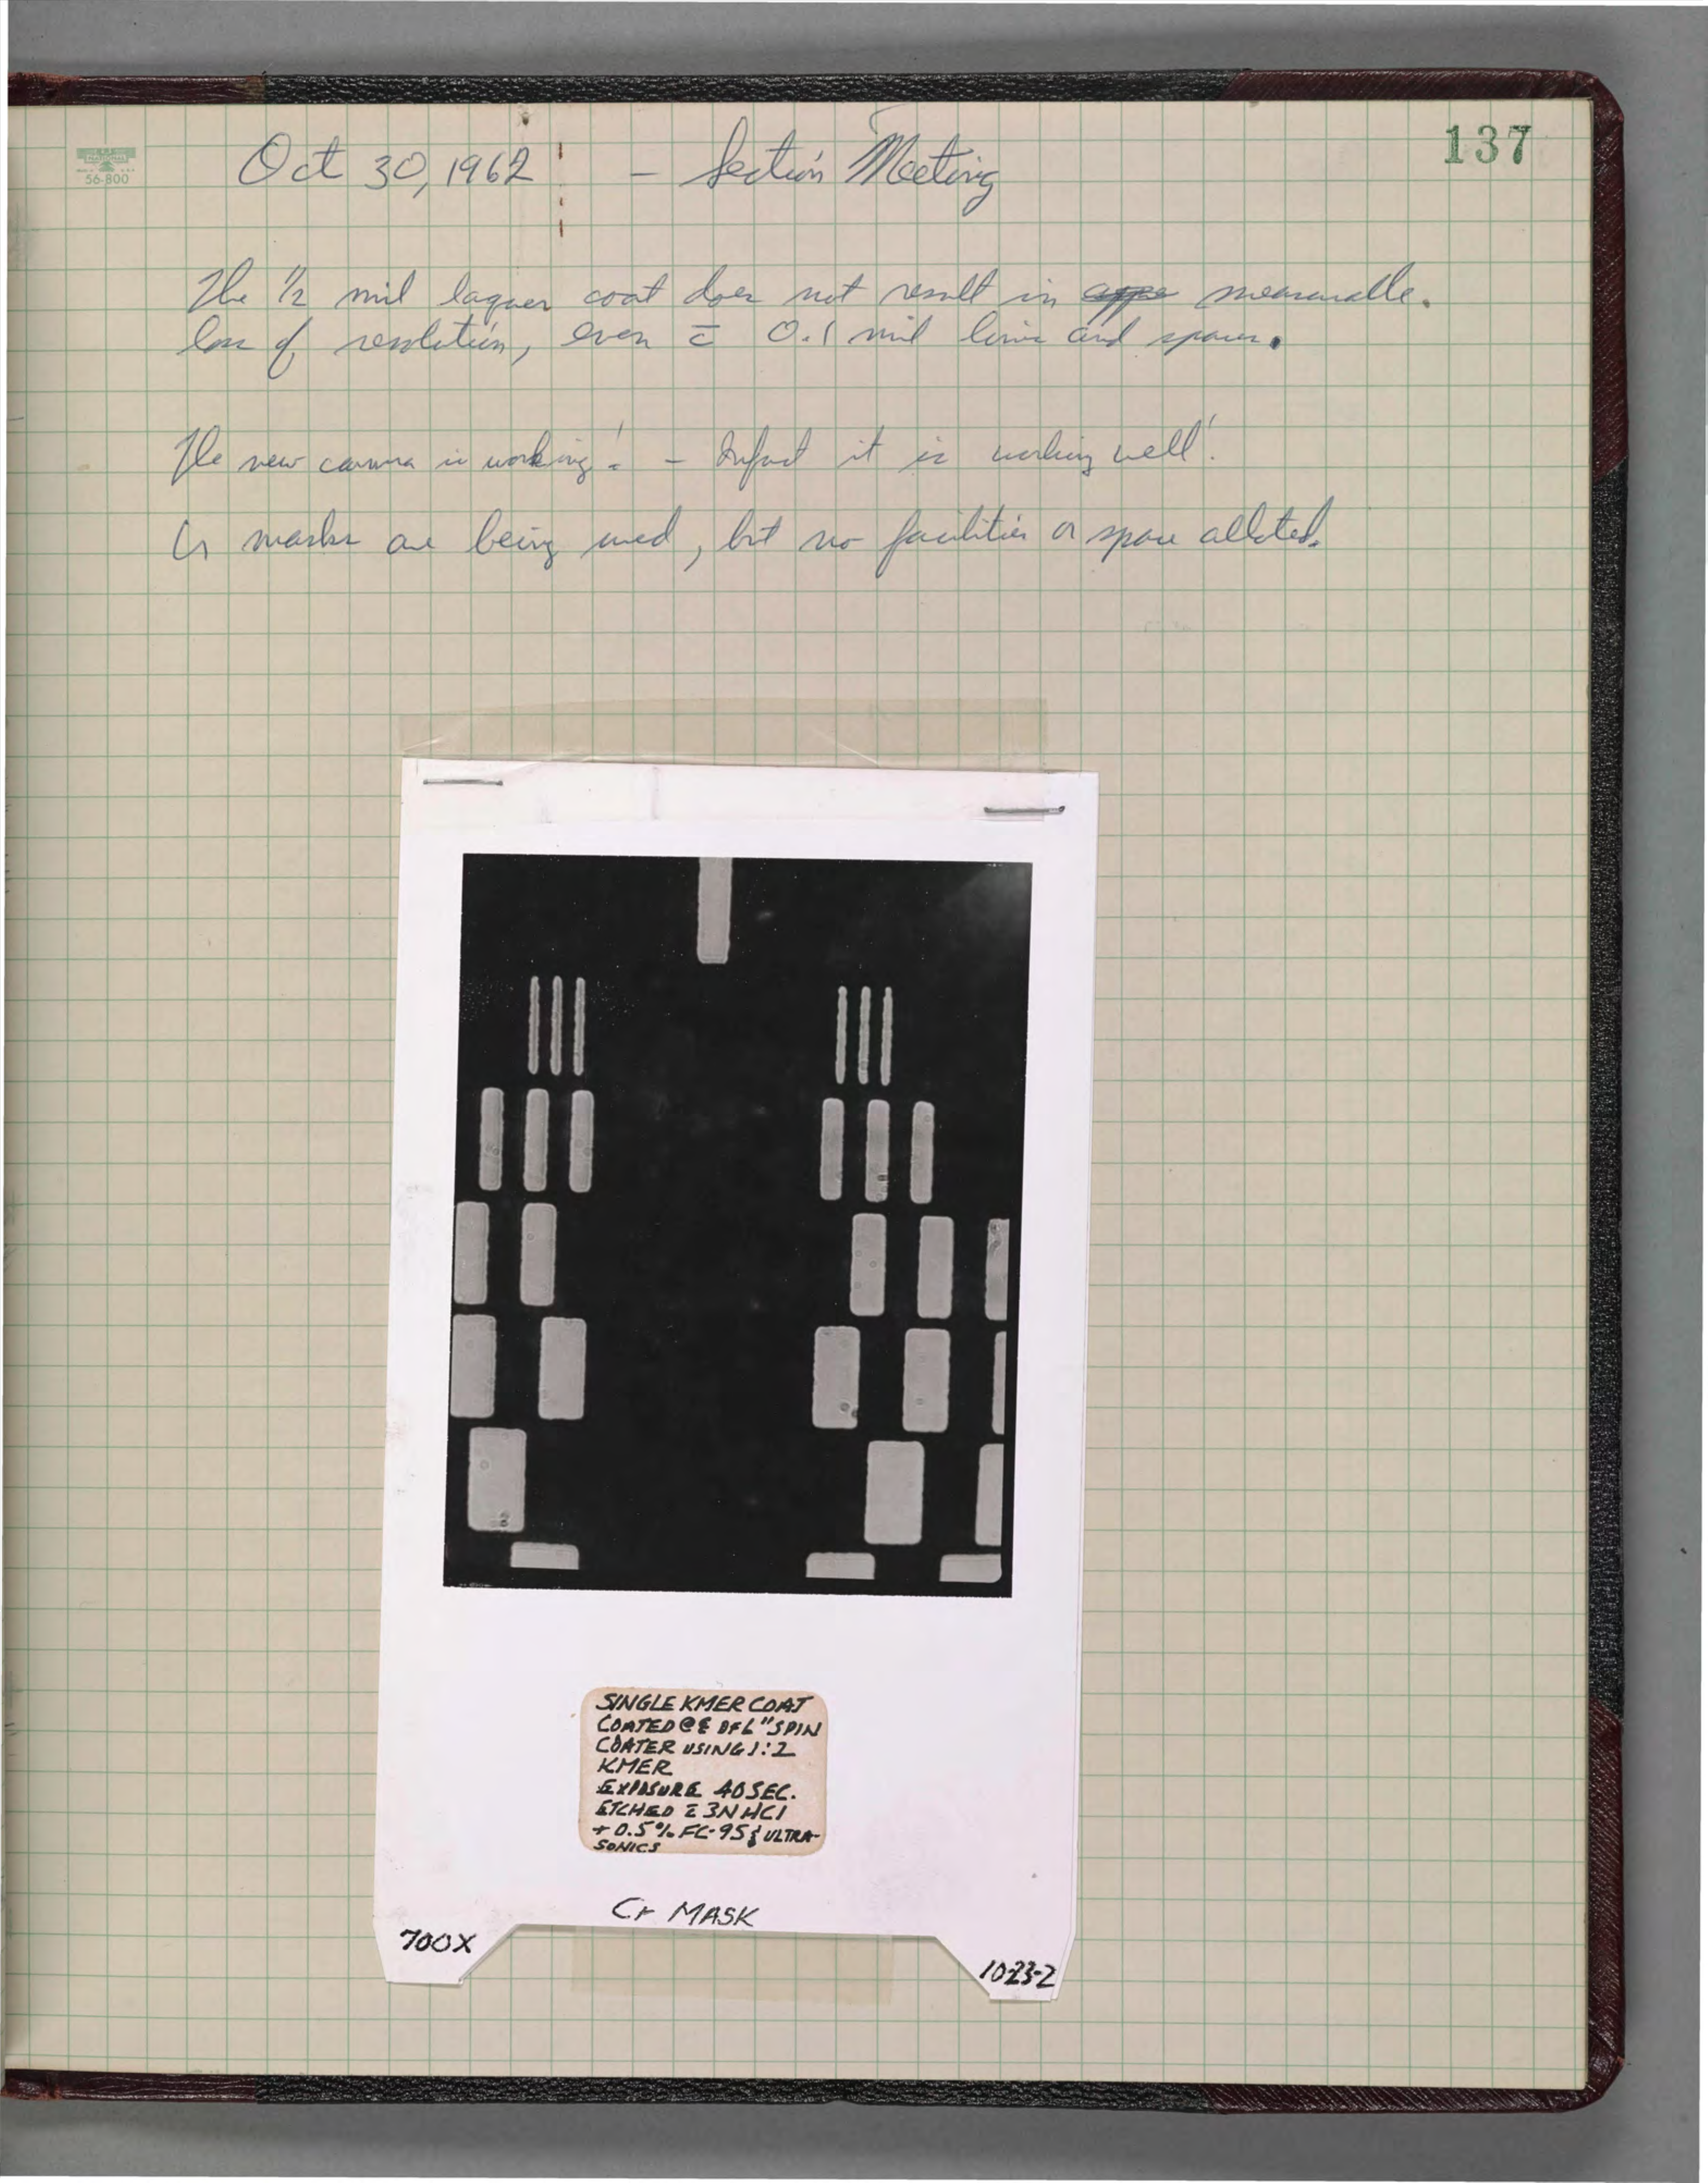 137
NATIONAL
56-800
Oct 30, 1962 - Section Meeting
The 1/2 mil laquer coat does not result in measurable.
loss of resolution, even c̄ 0.1 mil lines and spaces.
The new camera is working! - Infact it is working well!
Cr masks are being used, but no facilities or space alloted.
SINGLE KMER COAT
COATED @ DFL "SPIN
COATER USING 1:2
KMER
EXPOSURE 40 SEC.
ETCHED c̄ 3N HCl
+ 0.5% FC-95 & ULTRA-
SONICS
Cr MASK
700X
10-23-2